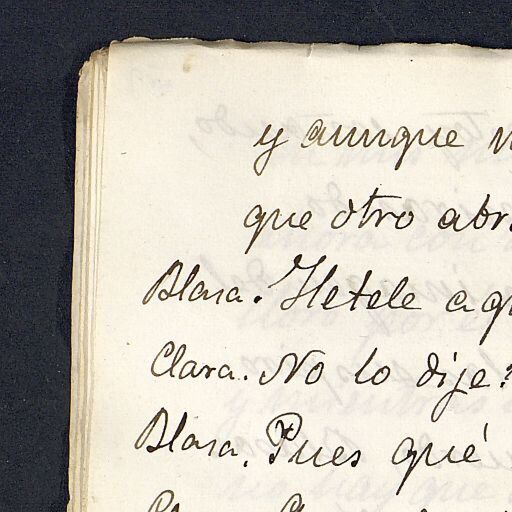 y aunque
que otro abr
Blasa. Hetele aq
Clara. No lo dije?
Blasa. Pues qué